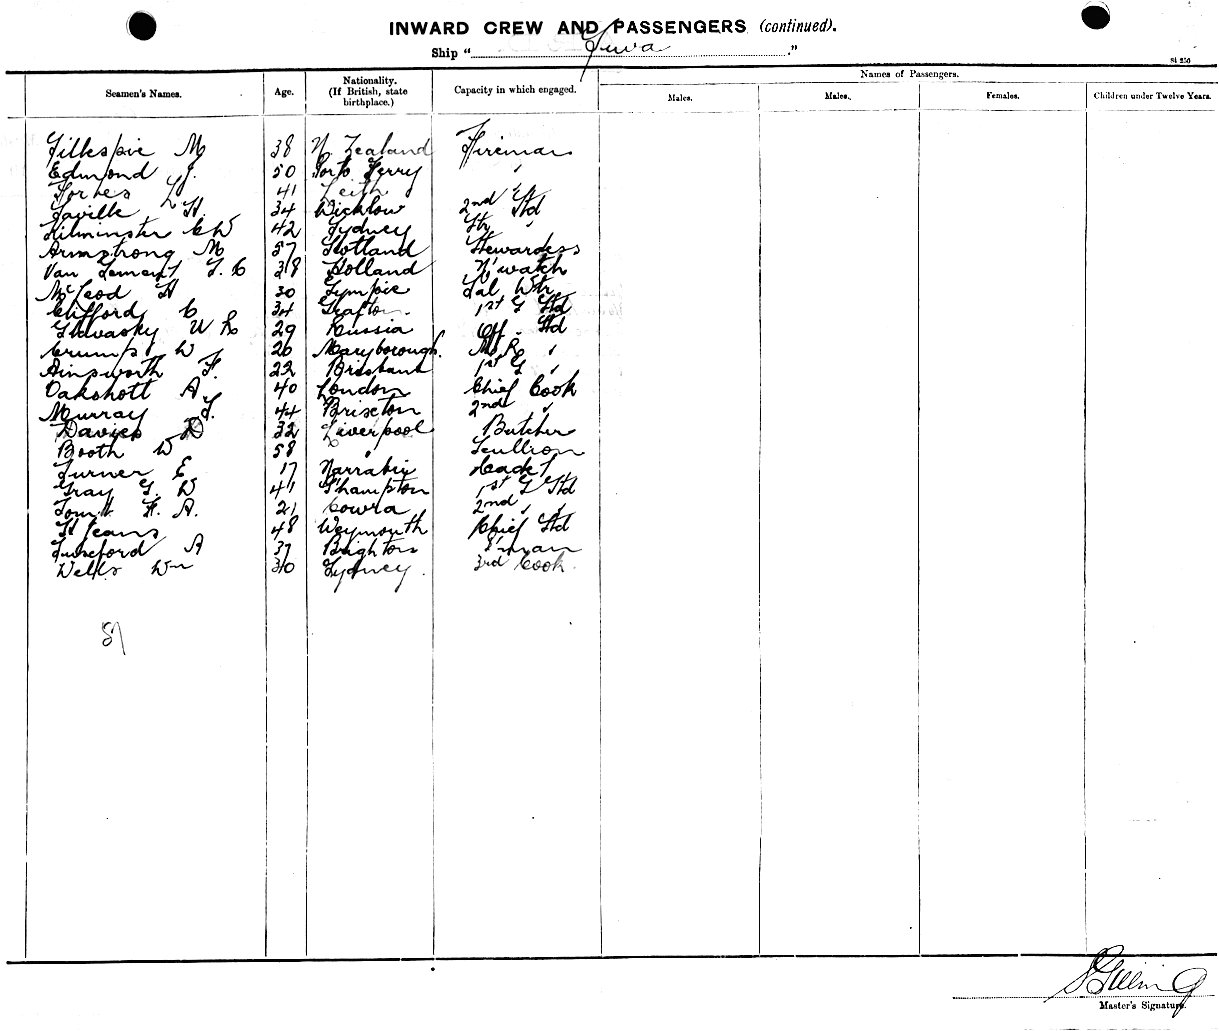 INWARD CREW AND PASSENGERS (continued).
Ship " Suva ."
St 250
Seamen's Names. Age. Nationality. (If British, state birthplace.) Capacity in which engaged. Names of Passengers.
Males. Males. Females. Children under Twelve Years.
Gillespie M 38 N Zealand Fireman
Edmond J. 50 Port Ferry "
Forbes L 41 Leith "
Saville H. 34 Wicklow 2nd Std
Kilminster C W 42 Sydney Str "
Armstrong M 57 Scotland Stewardess
Van T. C 38 Holland N'watch
McLeod H 30 Gympie Sal Wtr
Clifford C 34 Grafton 1st G Std
W R 29 Russia Off. Std
Crump W 20 Maryborough. "
Ainsworth F. 22 Brisbane 1st G "
Oakshott A. 40 London Chief Cook
Murray 44 Brixton 2nd "
Davies D 32 Liverpool Butcher
Booth W 58 " Scullion
Turner E 17 Narrabri Cadet
Gray G. W 41 S'hampton 1st G Std
H. A. 21 Cowra 2nd " "
St Jeans 48 Weymouth Chief Std
A 37 Brighton F'man
Wells Wm 30 Sydney. 3rd Cook.
81
Master's Signature.